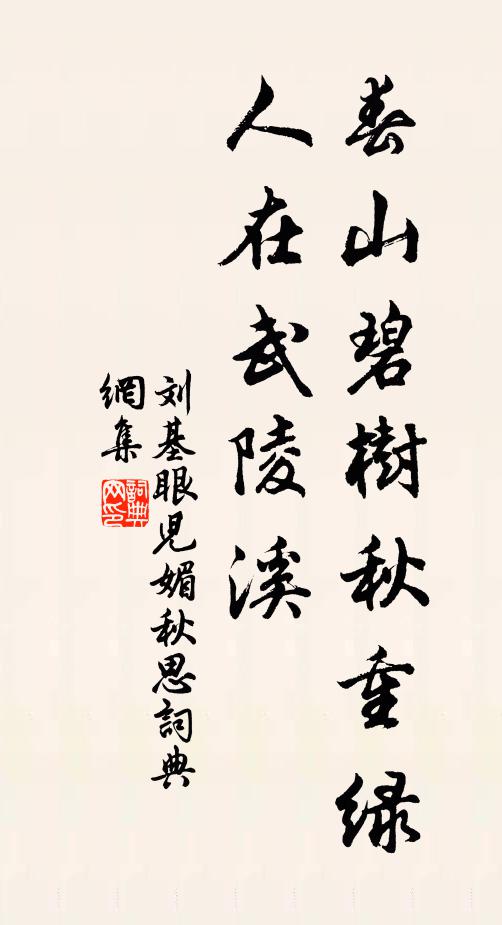 春山碧樹秋重綠
人在武陵溪
刘基眼児媚秋思詞典
網集
詞典
网印